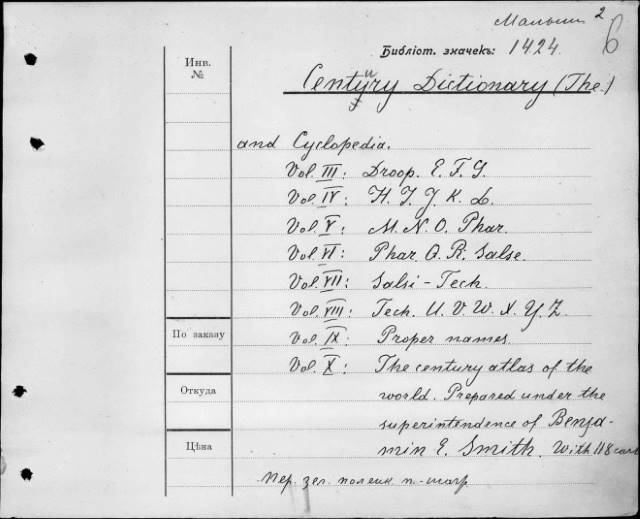 2
6
Библіот. значекъ: 1424.
Инв.
№
Century Dictionary (The)
and Cyclopedia.
Vol. III: Droop. E. F. G.
Vol. IV: H. I. J. K. L.
Vol. V: M. N. O. Phar.
Vol. VI: Phar. Q. R. Salse.
Vol. VII: Salsi - Tech.
Vol. VIII: Tech. U. V. W. X. Y. Z.
По заказу
Vol. IX: Proper names.
Vol. X: The century atlas of the
Откуда
world. Prepared under the
superintendence of Benja-
Цѣна
min E. Smith. With 118 cart
пер. зел.